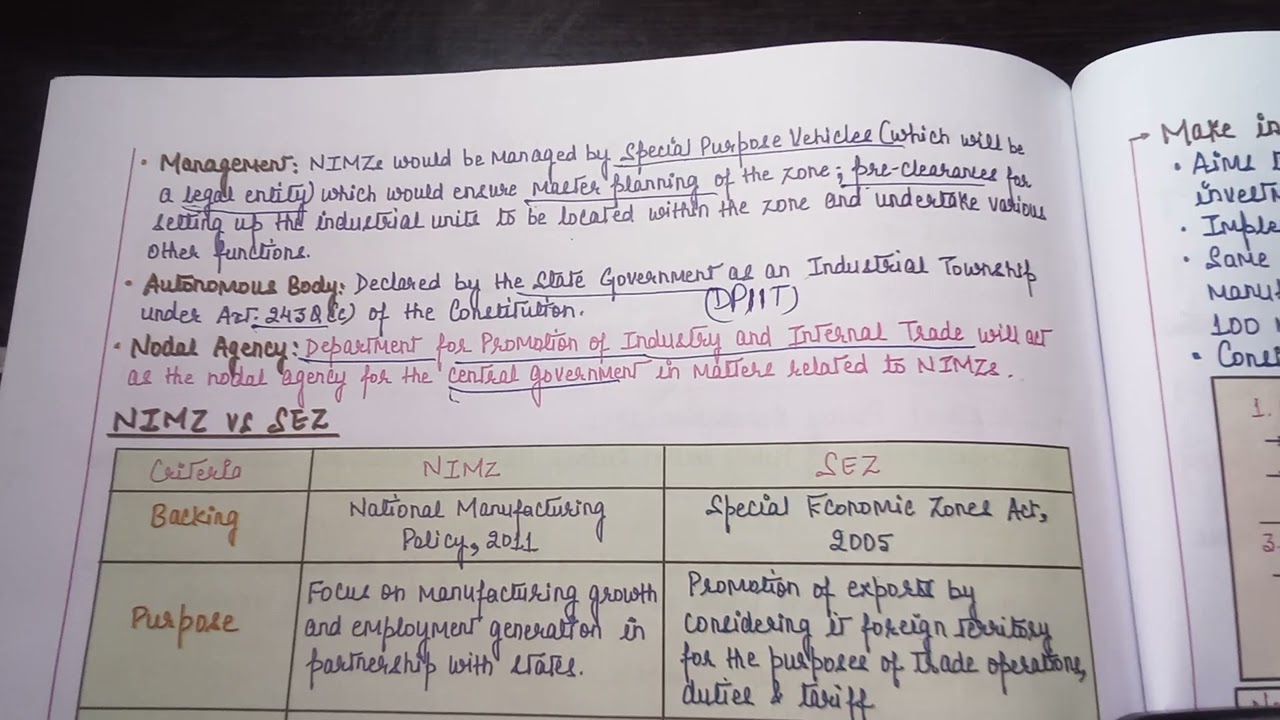 • Management: NIMZs would be managed by Special Purpose Vehicles (which will be
a legal entity) which would ensure Master planning of the zone; pre-clearances for
setting up the industrial units to be located within the zone and undertake various
other functions.
• Autonomous Body: Declared by the State Government as an Industrial Township
under Art. 243Q(c) of the Constitution.
(DPIIT)
• Nodal Agency: Department for Promotion of Industry and Internal Trade will act
as the nodal agency for the central government in matters related to NIMZs.
NIMZ vs SEZ
Criteria NIMZ SEZ
Backing
National Manufacturing
Policy, 2011
Special Economic Zones Act,
2005
Purpose
Focus on manufacturing growth
and employment generation in
partnership with states.
Promotion of exports by
considering it foreign territory
for the purposes of trade operations,
duties & tariff
→ Make in
• Aims
• Same
100
1.
3.